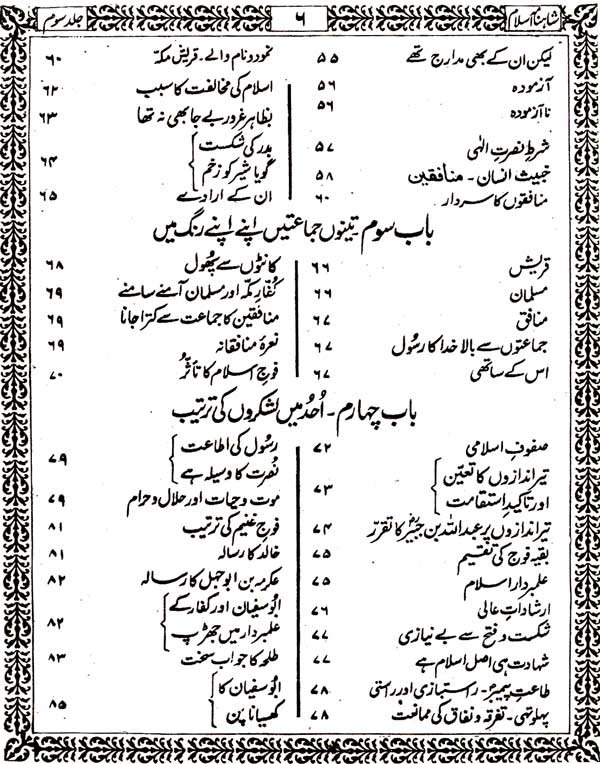 شاہنامۂ اسلام
۶
جلد سوم
لیکن ان کے بھی مدارج تھے ۵۵
آزمودہ ۵۶
نا آزمودہ ۵۶
شرطِ نصرتِ الٰہی ۵۷
خبیث انسان - منافقین ۵۸
منافقوں کا سردار ۶۰
نمود و نام والے - قریش مکہ ۶۰
اسلام کی مخالفت کا سبب ۶۲
بظاہر غرور بے جا بھی نہ تھا ۶۳
بدر کی شکست
گویا شیر کو زخم ۶۴
ان کے ارادے ۶۵
باب سوم - تینوں جماعتیں اپنے اپنے رنگ میں
قریش ۶۶
مسلمان ۶۶
منافق ۶۷
جماعتوں سے بالا خدا کا رسول ۶۷
اس کے ساتھی ۶۷
کانٹوں سے پھول ۶۸
کفارِ مکہ اور مسلمان آمنے سامنے ۶۹
منافقین کا جماعت سے کترا جانا ۶۹
نعرۂ منافقانہ ۶۹
فوجِ اسلام کا تأثر ۷۰
باب چہارم - اُحد میں لشکروں کی ترتیب
صفوفِ اسلامی ۷۲
تیر اندازوں کا تعین
اور تاکیدِ استقامت ۷۳
تیر اندازوں پر عبداللہ بن جبیرؓ کا تقرر ۷۴
بقیہ فوج کی تقسیم ۷۵
علمبردارِ اسلام ۷۵
ارشاداتِ عالی ۷۶
شکست و فتح سے بے نیازی ۷۷
شہادت ہی اصل اسلام ہے ۷۷
طاعتِ پیمبرؐ - راستبازی اور راستی ۷۸
پہلو تہی - تفرقہ و نفاق کی ممانعت ۷۸
رسول کی اطاعت
نصرت کا وسیلہ ہے ۷۹
موت و حیات اور حلال و حرام ۷۹
فوجِ غنیم کی ترتیب ۸۱
خالد کا رسالہ ۸۱
عکرمہ بن ابوجہل کا رسالہ ۸۲
ابوسفیان اور کفار کے
علمبردار میں جھڑپ ۸۲
طلحہ کا جواب سخت ۸۳
ابوسفیان کا
کھسیانا پن ۸۵